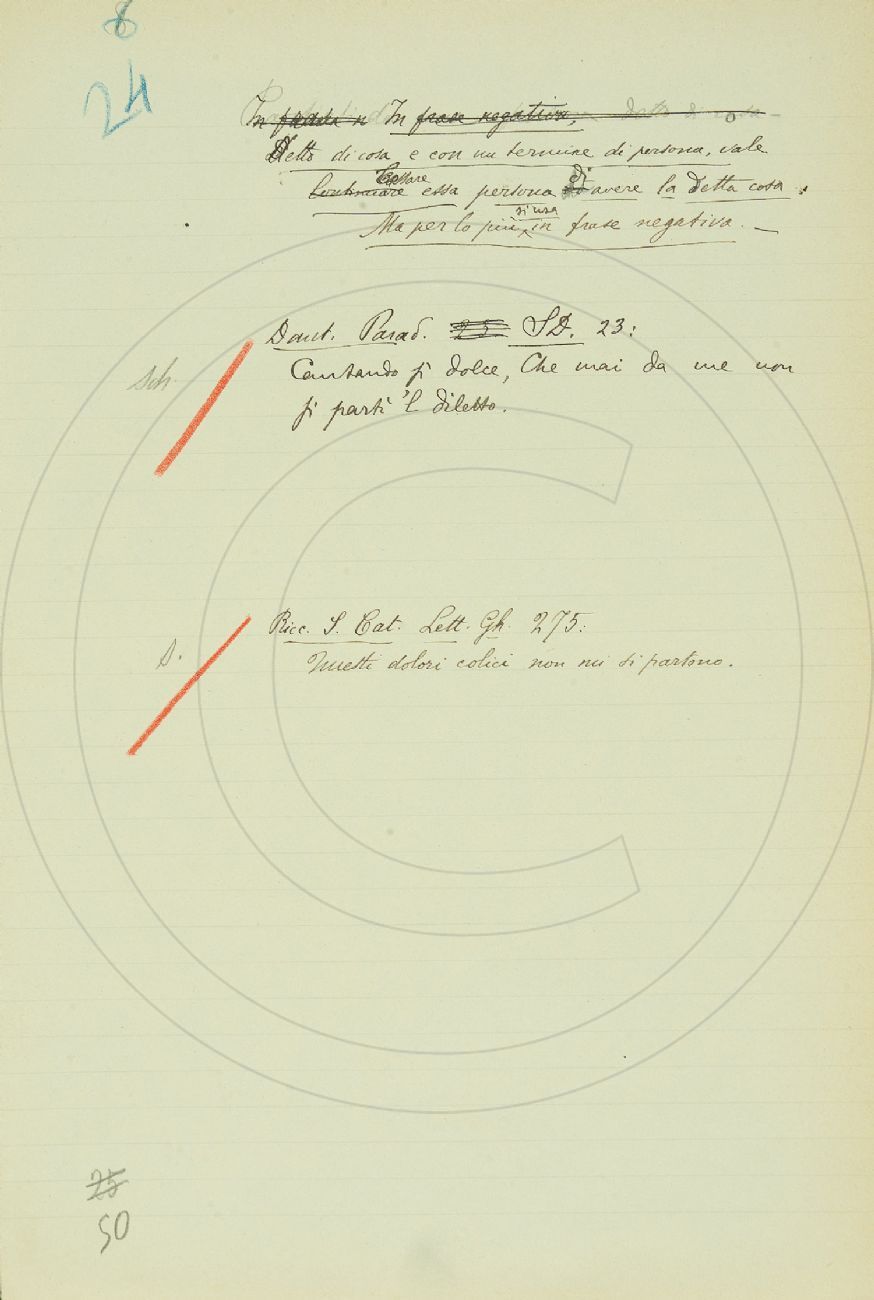 8
24
In frase n In frase negativa,
Detto di cosa e con un termine di persona, vale
Cessare
Continuare essa persona di avere la detta cosa.
si usa
Ma per lo più in frase negativa. —
Dant. Parad. 25 SD. 23:
sch
Cantando sì dolce, Che mai da me non
si partì 'l diletto.
Ricc. S. Cat. Lett. Gh. 275:
s.
Questi dolori colici non mi si partono.
25
50